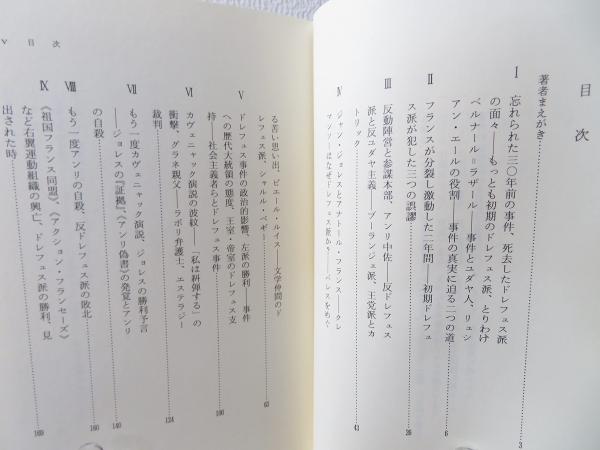 目次
著者まえがき
Ⅰ 忘れられた三〇年前の事件、死去したドレフュス派
の面々――もっとも初期のドレフュス派、とりわけ
ベルナール＝ラザール――事件とユダヤ人、リュシ
アン・エールの役割――事件の真実に迫る二つの道
3
6
Ⅱ フランスが分裂し激動した二年間――初期ドレフュ
ス派が犯した三つの誤謬
26
Ⅲ 反動陣営と参謀本部、アンリ中佐――反ドレフュス
派と反ユダヤ主義――ブーランジェ派、王党派とカ
トリック
41
Ⅳ ジャン・ジョレスとアナトール・フランス――クレ
マンソーはなぜドレフュス派か？
V 目次
る苦い思い出、ピエール・ルイス――文学仲間のド
レフュス派、シャルル・ペギー
63
Ⅴ ドレフュス事件の政治的影響、左派の勝利――事件
への歴代大統領の態度、王室・帝室のドレフュス支
持――社会主義者らとドレフュス事件
100
Ⅵ カヴェニャック演説の波紋――「私は糾弾する」の
衝撃、グラネ親父――ラボリ弁護士、エステラジー
裁判
124
Ⅶ もう一度カヴェニャック演説、ジョレスの勝利予言
――ジョレスの『証拠』、《アンリ偽書》の発覚とアンリ
の自殺
140
Ⅷ もう一度アンリの自殺、反ドレフュス派の敗北
160
Ⅸ 《祖国フランス同盟》、《アクション・フランセーズ》
など右翼運動組織の興亡、ドレフュス派の勝利、見
出された時
169